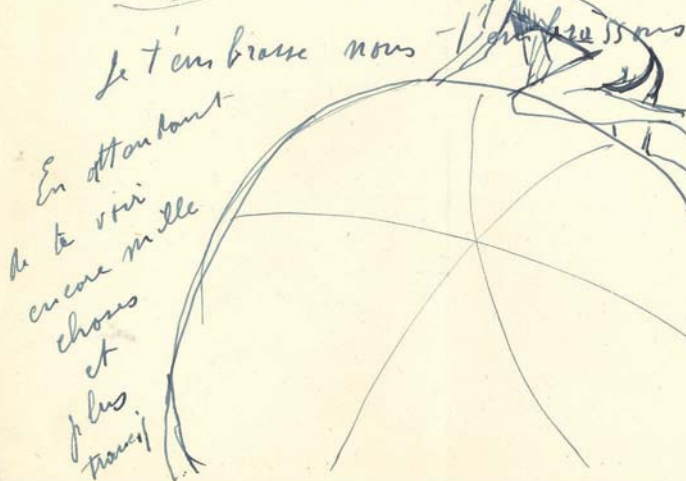 Je t'embrasse nous t'embrassons
En attendant
de te voir
encore mille
choses
et
plus